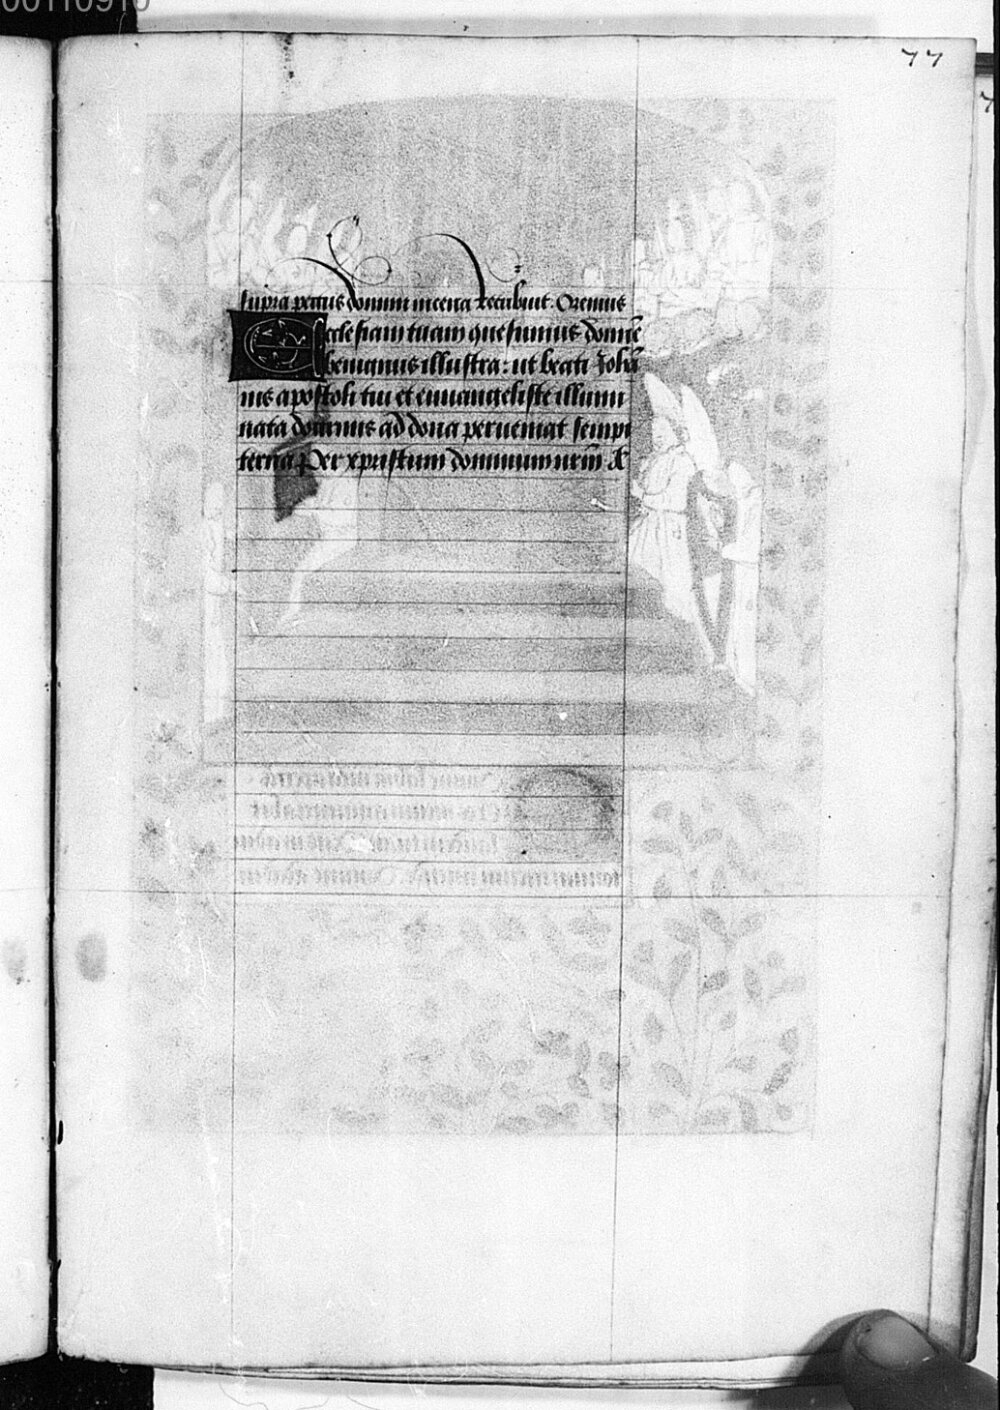 77
supra pectus domini in cena recubuit. Oremus
Ecclesiam tuam quesumus domıe
benignus illustra: ut beati Joha
nis apostoli tui et euuangeliste illumi
nata doctrinis ad dona perueniat sempi
terna Per xpristum dominum nrm̄ A